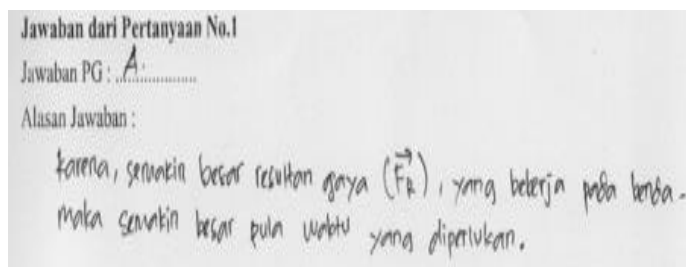 Jawaban dari Pertanyaan No.1
Jawaban PG : A.
Alasan Jawaban :
karena, semakin besar resultan gaya (F⃗R), yang bekerja pada benda.
maka semakin besar pula waktu yang diperlukan.